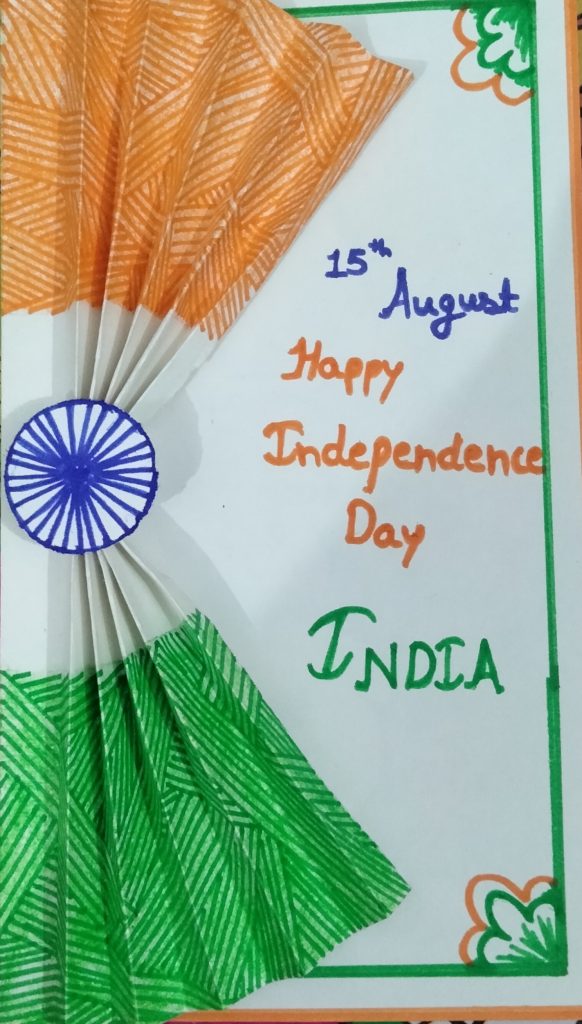 15th
August
Happy
Independence
Day
INDIA